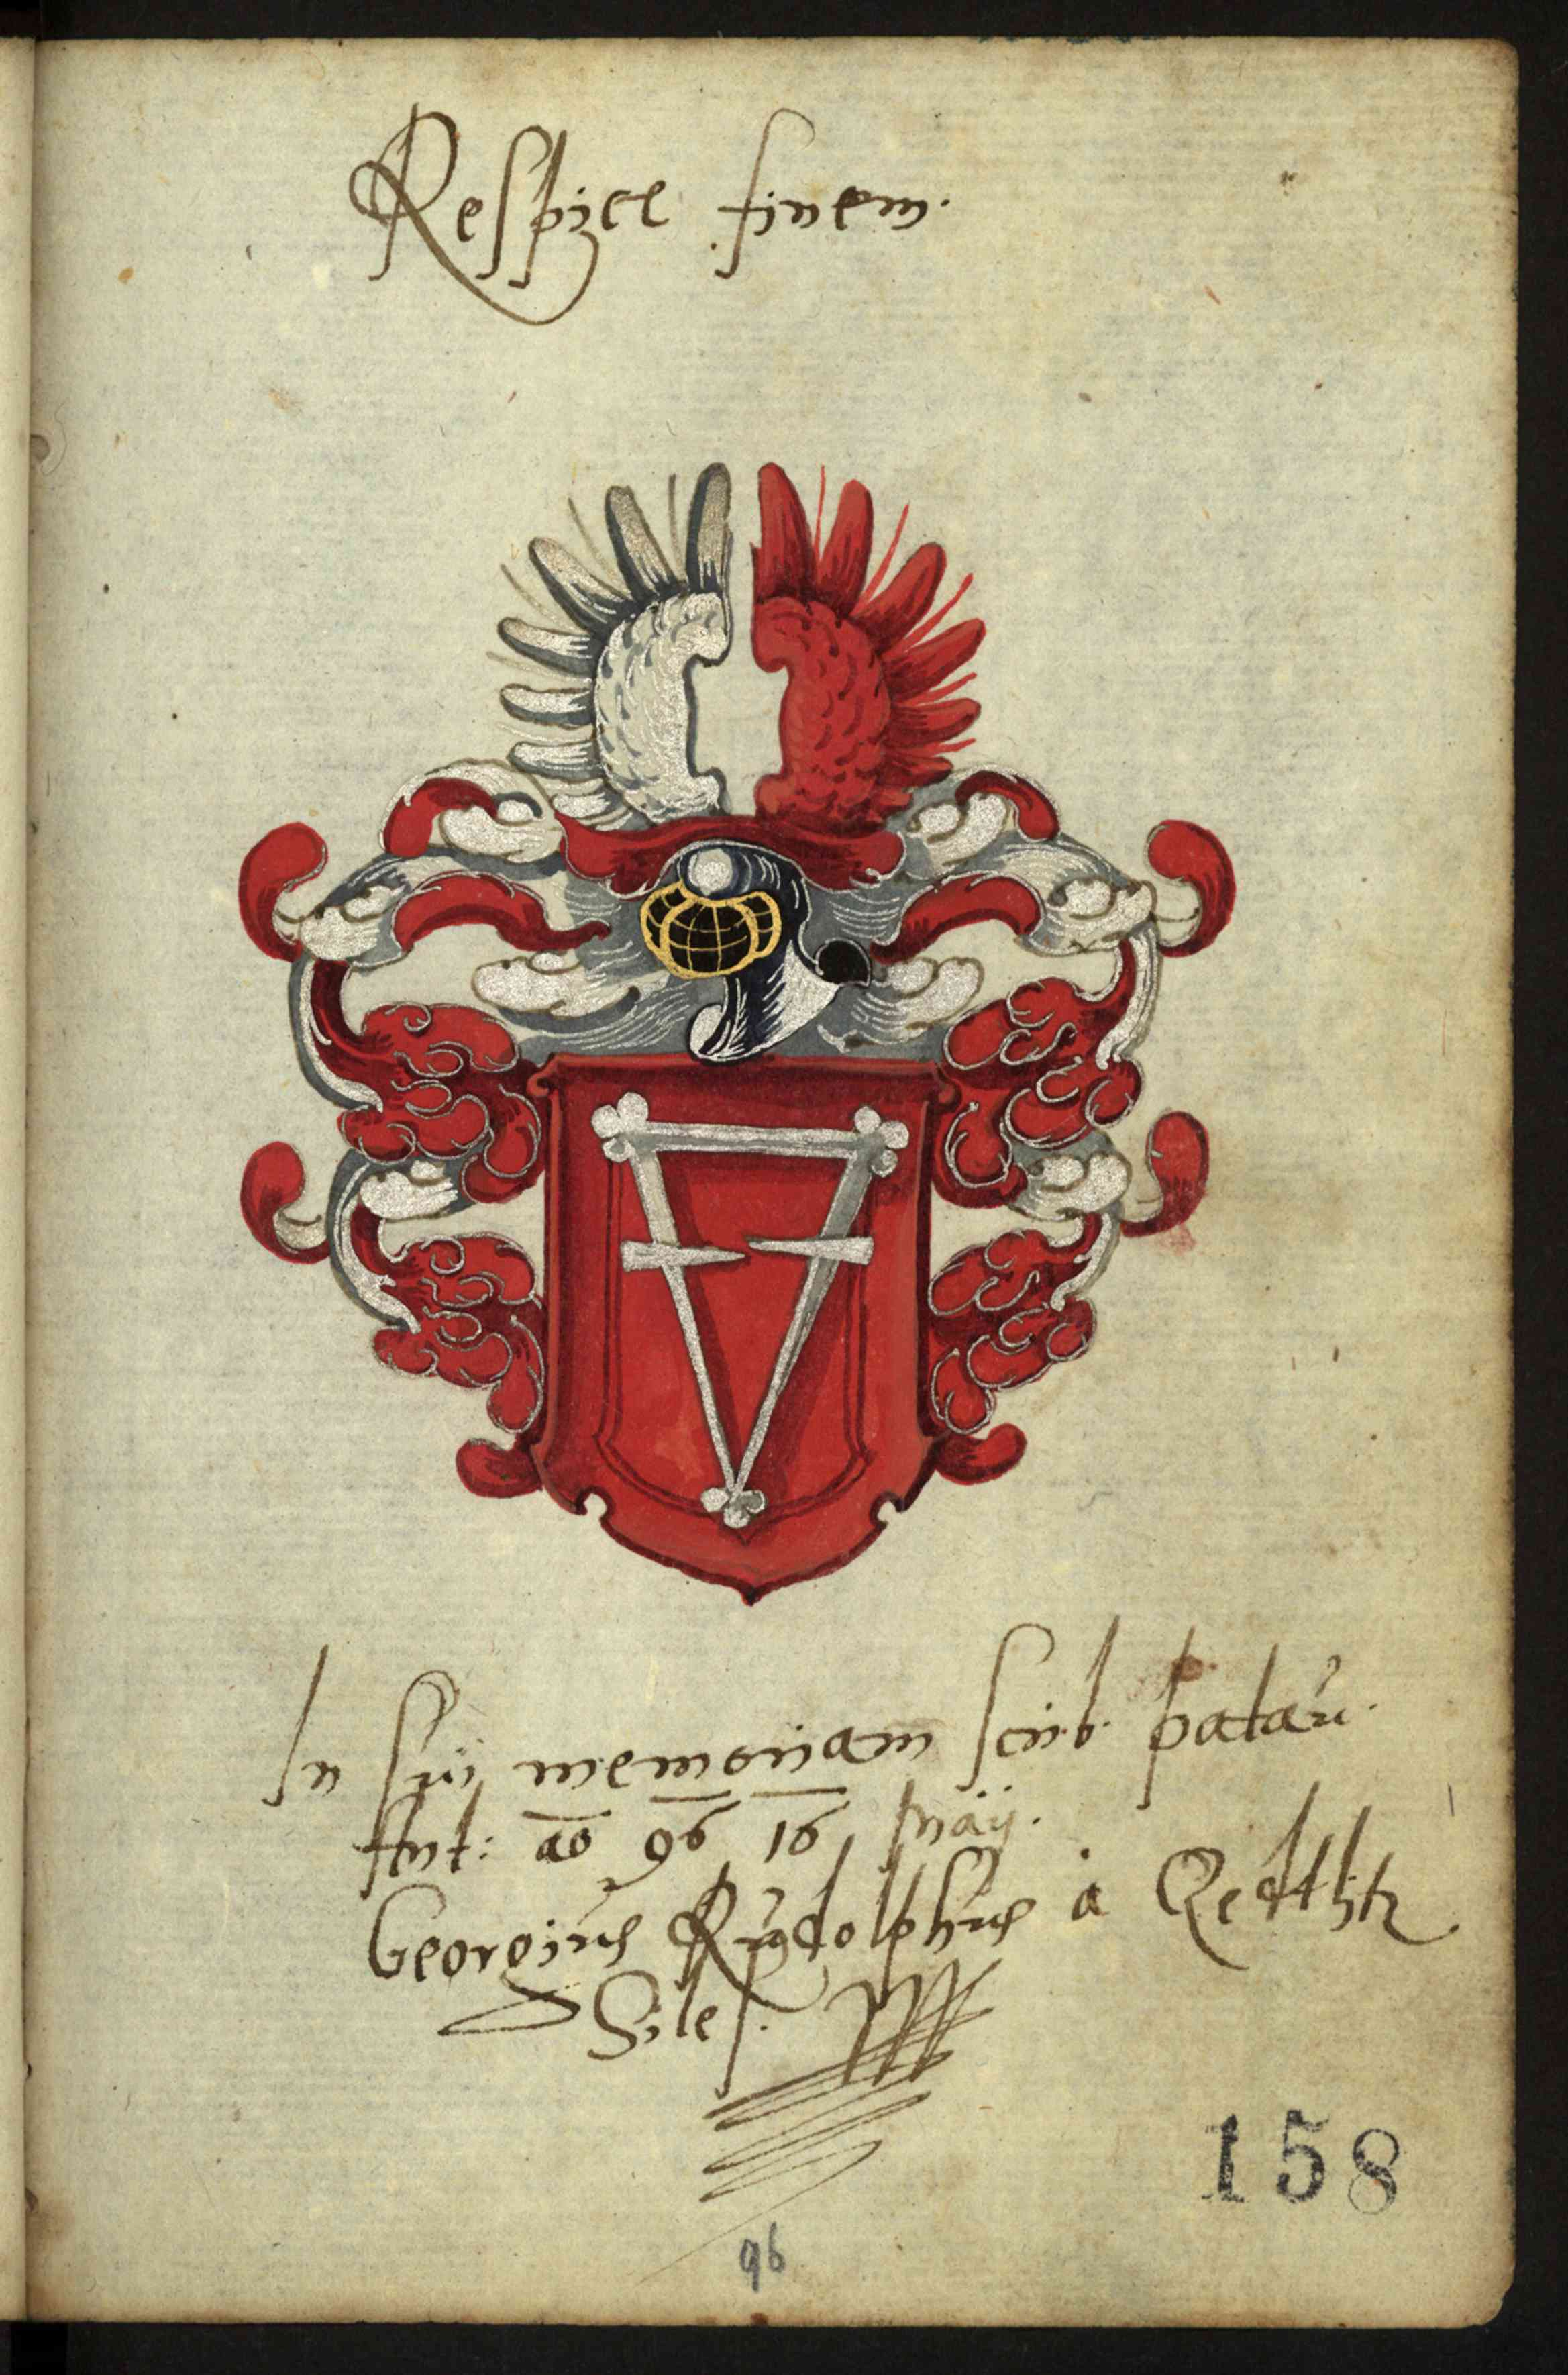 Respice finem.
In sui memoriam scrib. patau.
Ant: ao 96 16 Maÿ.
Georgius Rudolphus à
Siles.
158
96